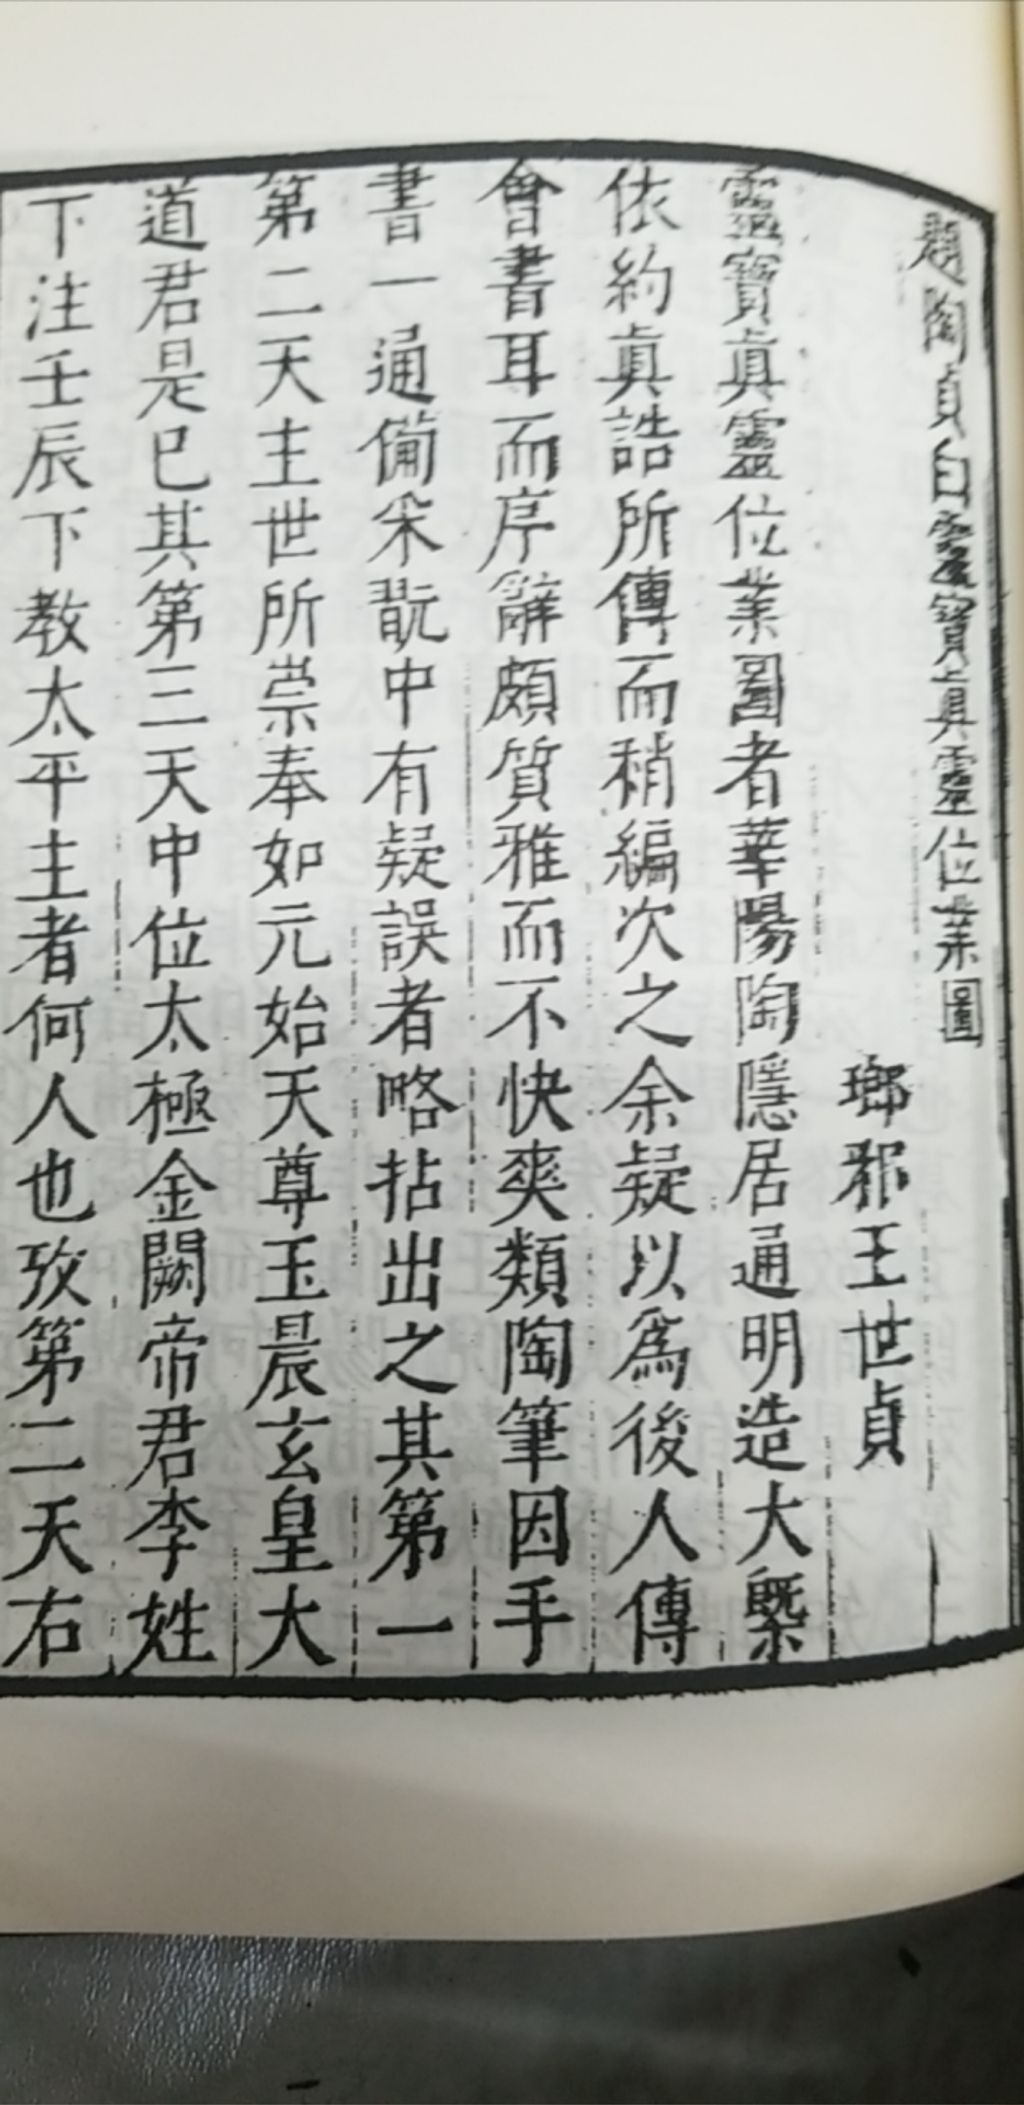 題陶貞白靈寶真靈位業圖
瑯邪王世貞
靈寶真靈位業圖者華陽陶隱居通明造大槩
依約真誥所傳而稍編次之余疑以為後人傳
會書耳而序辭頗質雅而不快爽類陶筆因手
書一通備采翫中有疑誤者略拈出之其第一
第二天主世所崇奉如元始天尊玉晨玄皇大
道君是已其第三天中位太極金闕帝君李姓
下注壬辰下教太平主者何人也攷第二天右